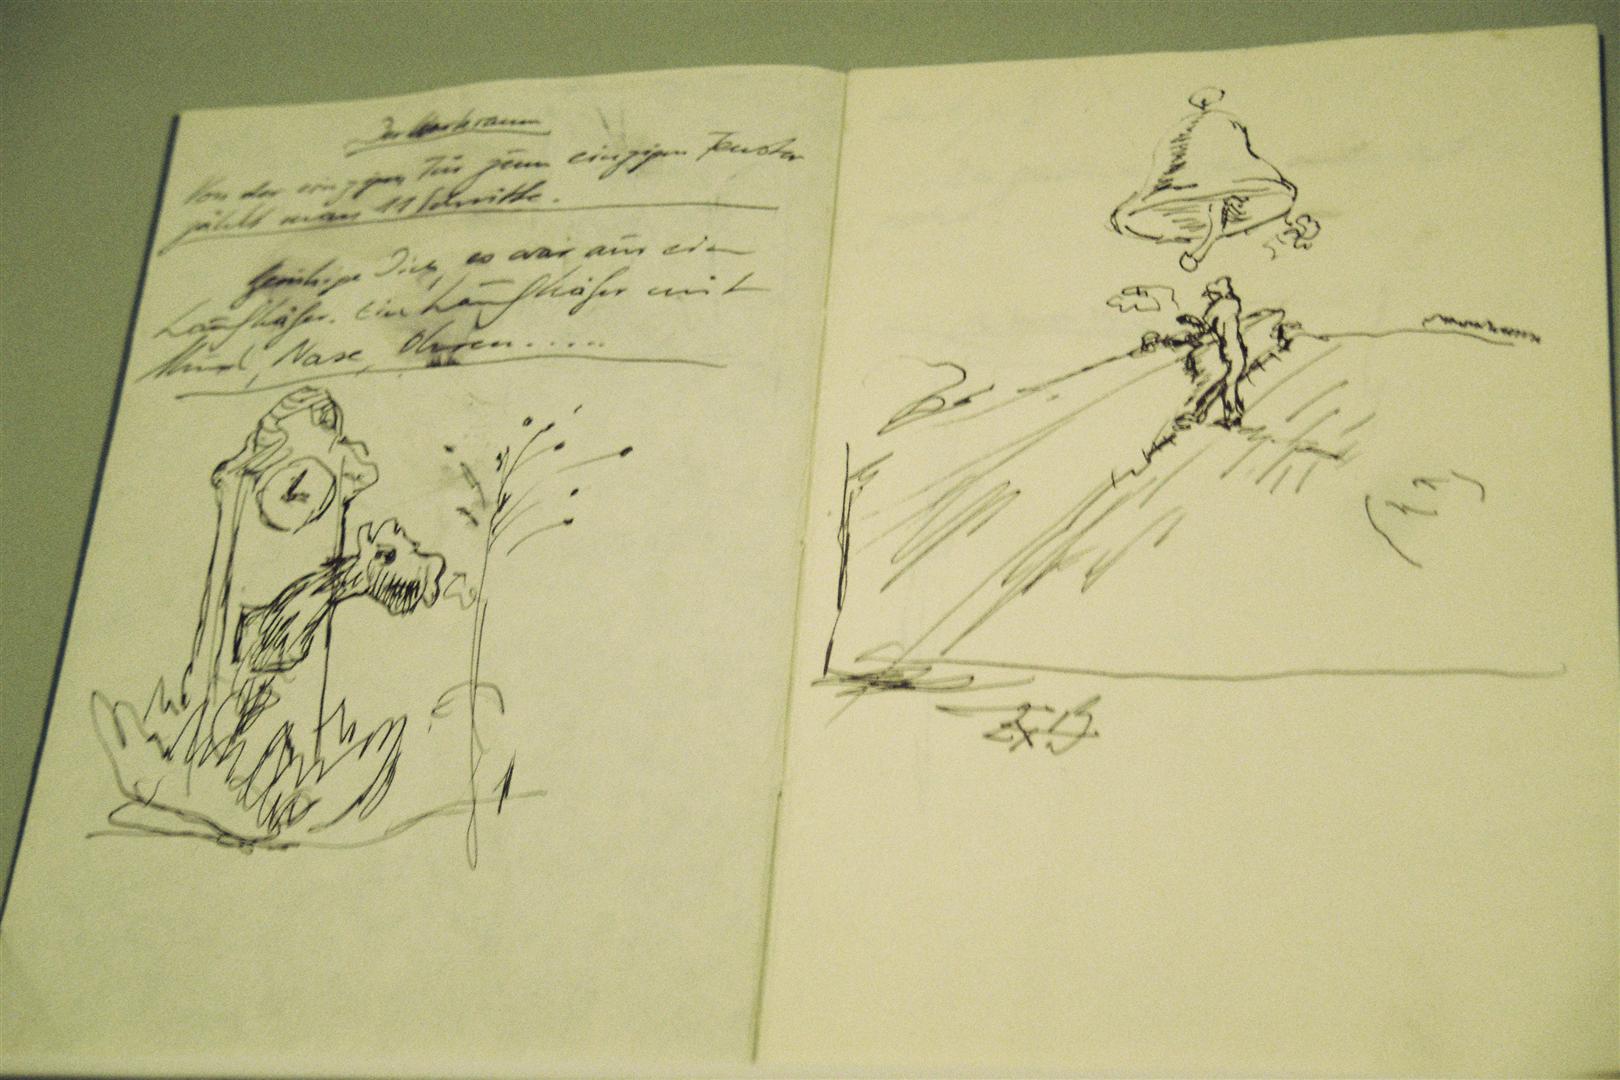 Von der einzigen Tür zum einzigen Fenster
zählt man 11 Schritte.
Beruhige Dich, es war nur ein
Laufkäfer. Ein Laufkäfer mit
Mund, Nase, Ohren.....